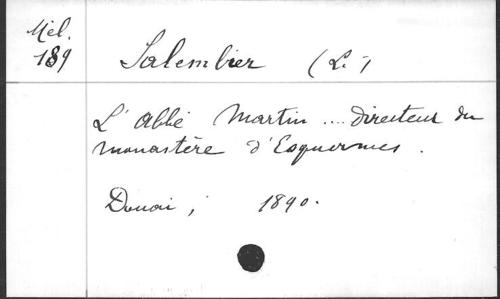 Mél.
189
Salembier (L.)
L'abbé Martin .... directeur du
monastère d'Esquermes.
Douai, 1890.